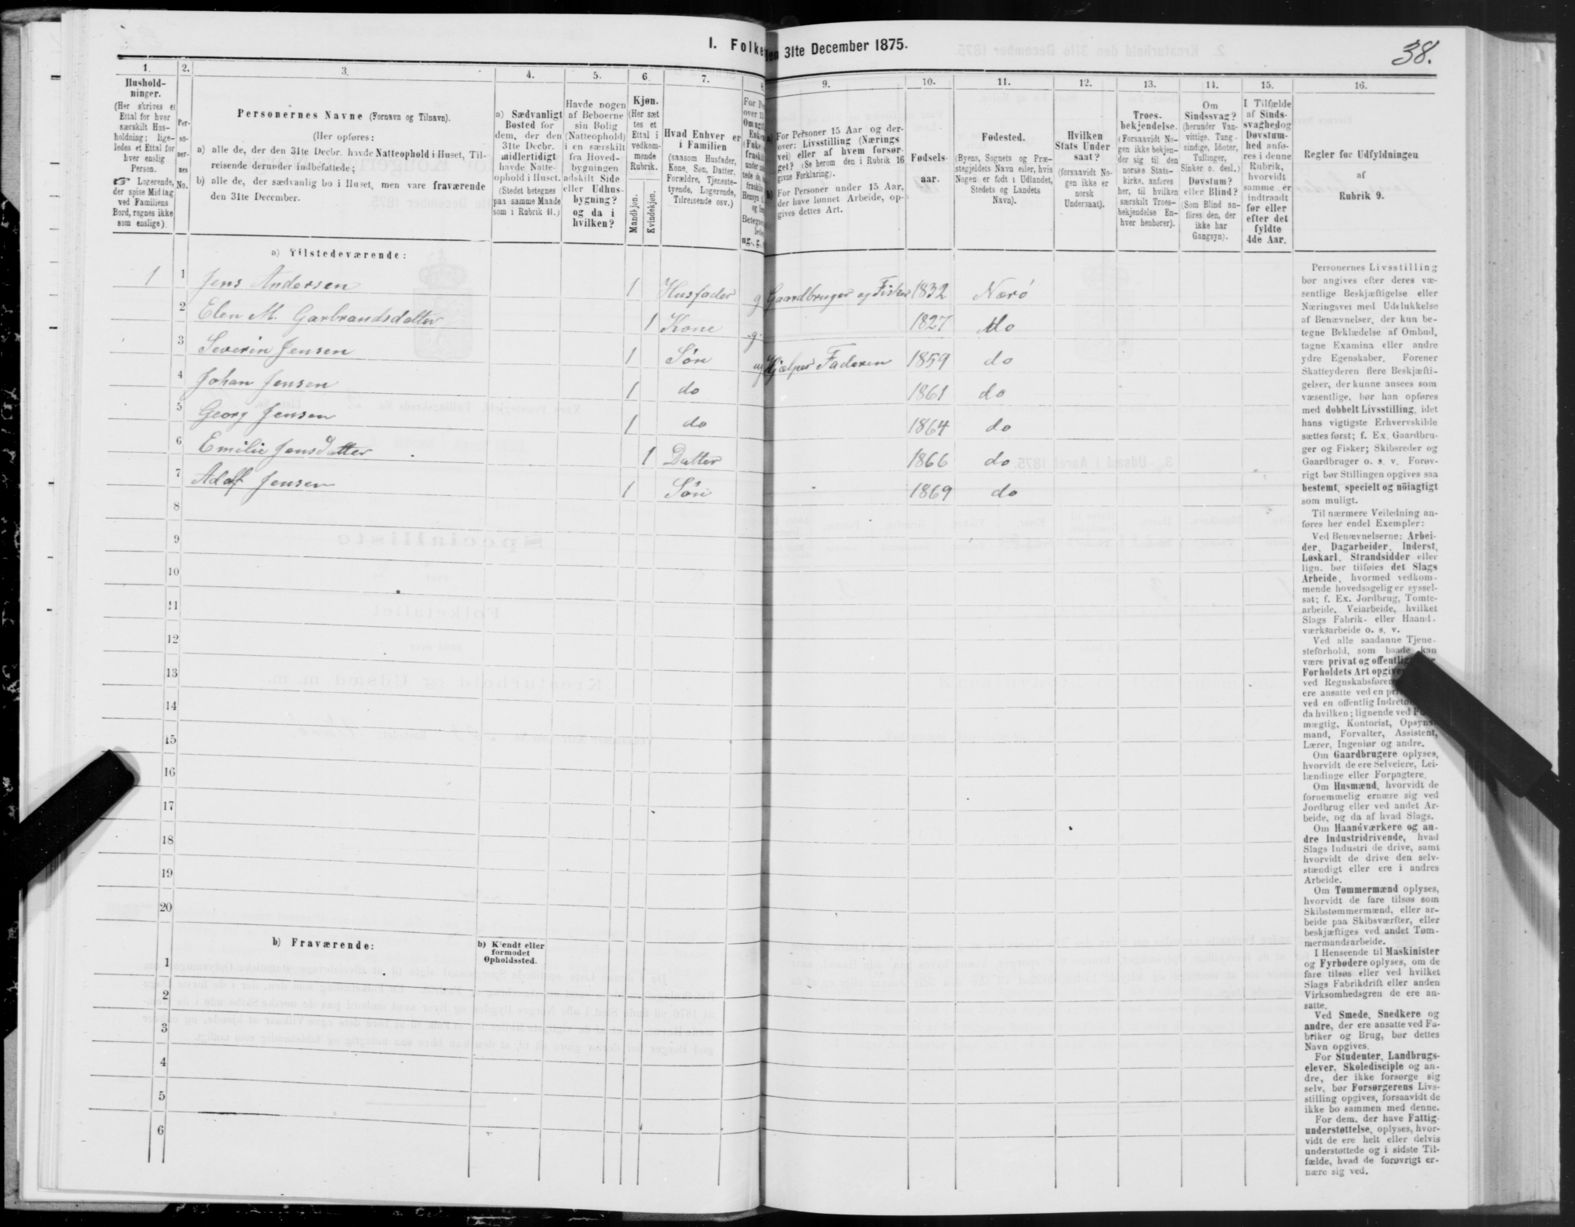 I. Folke
en 31te December 1875.
38.
1.
Hushold-
ninger.
(Her skrives et
Ettal for hver
særskilt Hus-
holdning; lige-
ledes et Ettal for
hver enslig
Person.
☞ Logerende,
der spise Middag
ved Familiens
Bord, regnes ikke
som enslige)
2.
Per-
so-
ner-
nes
No.
3.
Personernes Navne (Fornavn og Tilnavn).
(Her opføres:
a) alle de, der den 31te Decbr. havde Natteophold i Huset, Til-
reisende derunder indbefattede;
b) alle de, der sædvanlig bo i Huset, men vare fraværende
den 31te December.
4.
a) Sædvanligt
Bosted for
dem, der den
31te Decbr.
midlertidigt
havde Natte-
ophold i Huset.
(Stedet betegnes
paa samme Maade
som i Rubrik 11.)
5.
Havde nogen
af Beboerne
sin Bolig
(Natteophold)
i en særskilt
fra Hoved-
bygningen
adskilt Side
eller Udhus-
bygning?
og da i
hvilken?
6.
Kjøn.
(Her sæt
tes et
Ettal i
vedkom-
mende
Rubrik.
Mandkjøn.
Kvindekjøn.
7.
Hvad Enhver er
i Familien
(saasom Husfader,
Kone, Søn, Datter,
Forældre, Tjeneste-
tyende, Logerende,
Tilreisende osv.)
9.
a) For Personer 15 Aar og der-
over: Livsstilling (Nærings
vei) eller af hvem forsør-
get? (Se herom den i Rubrik 16
givne Forklaring).
b) For Personer under 15 Aar,
der have lønnet Arbeide, op-
gives dettes Art.
10.
Fødsels-
aar.
11.
Fødested.
(Byens, Sognets og Præ-
stegjeldets Navn eller, hvis
Nogen er født i Udlandet,
Stedets og Landets
Navn).
12.
Hvilken
Stats Under
saat?
(forsaavidt No-
gen ikke er
norsk
Undersaat).
13.
Troes-
bekjendelse.
(Forsaavidt No-
gen ikke bekjen-
der sig til den
norske Stats-
kirke, anføres
her, til hvilken
særskilt Troes-
bekjendelse En-
hver henhører).
14.
Om
Sindssvag?
(herunder Van-
vittige, Tung-
sindige, Idioter,
Tullinger,
Sinker o. desl.)
Døvstum?
eller Blind?
(Som Blind an-
føres den, der
ikke har
Gangsyn).
15.
I Tilfælde
af Sinds-
svaghed og
Døvstum-
hed anfø-
res i denne
Rubrik,
hvorvidt
samme er
indtraadt
før eller
efter det
fyldte
4de Aar.
16.
Regler for Udfyldningen
af
Rubrik 9.
a) Tilstedeværende:
1 1 Jens Andersen 1 Husfader g Gaardbruger og Fisker 1832 Nærø
2 Elen M. Garbrandsdatter 1 Kone g. 1827 do
3 Severin Jensen 1 Søn ug Hjælper Faderen 1859 do
4 Johan Jensen 1 do 1861 do
5 Georg Jensen 1 do 1864 do
6 Emilie Jensdatter 1 Datter 1866 do
7 Adolf Jensen 1 Søn 1869 do
8
9
10
11
12
13
14
15
16
17
18
19
20
b) Fraværende:
b) Kjendt eller
formodet
Opholdssted.
1
2
3
4
5
6
Personernes Livsstilling
bør angives efter deres væ-
sentlige Beskjæftigelse eller
Næringsvei med Udelukkelse
af Benævnelser, der kun be-
tegne Beklædelse af Ombud,
tagne Examina eller andre
ydre Egenskaber. Forener
Skatteyderen flere Beskjæfti-
gelser, der kunne ansees som
væsentlige, bør han opføres
med dobbelt Livsstilling, idet
hans vigtigste Erhvervskilde
sættes først; f. Ex. Gaardbru-
ger og Fisker; Skibsreder og
Gaardbruger o. s. v. Forøv-
rigt bør Stillingen opgives saa
bestemt, specielt og nøiagtigt
som muligt.
Til nærmere Veiledning an-
føres her endel Exempler:
Ved Benævnelserne: Arbei-
der, Dagarbeider, Inderst,
Løskarl, Strandsidder eller
lign. bør tilføies det Slags
Arbeide, hvormed vedkom-
mende hovedsagelig er syssel-
sat; f. Ex. Jordbrug, Tomte-
arbeide, Veiarbeide, hvilket
Slags Fabrik- eller Haand-
værksarbeide o. s. v.
Ved alle saadanne Tjene-
steforhold, som baade kan
være privat og offentlig
Forholdets Art opgives
ved Regnskabsfører
ere ansatte ved en
ved en offentlig
da hvilken; lignende ved
mægtig, Kontorist, Opsyns-
mand, Forvalter, Assistent,
Lærer, Ingeniør og andre.
Om Gaardbrugere oplyses,
hvorvidt de ere Selveiere, Lei-
lændinge eller Forpagtere.
Om Husmænd, hvorvidt de
fornemmelig ernære sig ved
Jordbrug eller ved andet Ar-
beide, og da af hvad Slags.
Om Haandværkere og an-
dre Industridrivende, hvad
Slags Industri de drive, samt
hvorvidt de drive den selv-
stændigt eller ere i andres
Arbeide.
Om Tømmermænd oplyses,
hvorvidt de fare tilsøs som
Skibstømmermænd, eller ar-
beide paa Skibsværfter, eller
beskjæftiges ved andet Tøm-
mermandsarbeide.
I Henseende til Maskinister
og Fyrbødere oplyses, om de
fare tilsøs eller ved hvilket
Slags Fabrikdrift eller anden
Virksomhedsgren de ere an-
satte.
Ved Smede, Snedkere og
andre, der ere ansatte ved Fa-
briker og Brug, bør dettes
Navn opgives.
For Studenter, Landbrugs-
elever, Skoledisciple og an-
dre, der ikke forsørge sig
selv, bør Forsørgerens Livs-
stilling opgives, forsaavidt de
ikke bo sammen med denne.
For dem, der have Fattig-
understøttelse, oplyses, hvor-
vidt de ere helt eller delvis
understøttede og i sidste Til-
fælde, hvad de forøvrigt er-
nære sig ved.